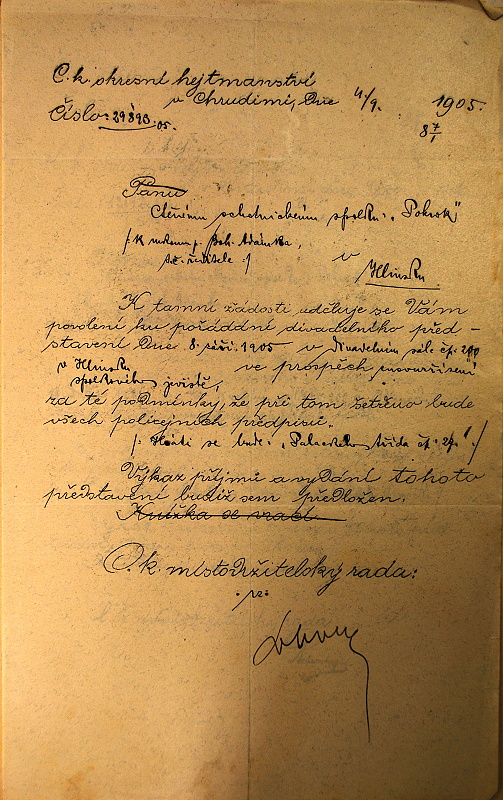 C. k. okresní hejtmanství
v Chrudimi, dne 4/9. 1905.
Číslo: 29893/05.
8 7/1
Pánu
Ctěnému ochotnickému spolku „Pokrok"
/: K rukoum p. Boh. Adámka,
t.č. ředitele :/
v
Hlinsku
K tamní žádosti uděluje se Vám
povolení ku pořádání divadelního před-
stavení dne 8. září 1905 v divadelním sále čp. 200
v Hlinsku ve prospěch
spolkového jeviště,
za té podmínky, že při tom šetřeno bude
všech policejních předpisů.
/: Hráti se bude: „Palackého třída čp. 27" :/
Výkaz příjmů a vydání tohoto
představení budiž sem předložen.
Knížka se vrací.
C. k. místodržitelský rada: